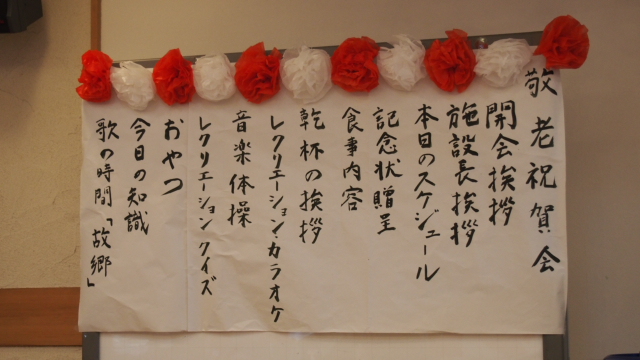 敬老祝賀会
開会挨拶
施設長挨拶
本日のスケジュール
記念状贈呈
食事内容
乾杯の挨拶
レクリエーション・カラオケ
音楽体操
レクリエーションクイズ
おやつ
今日の知識
歌の時間「故郷」